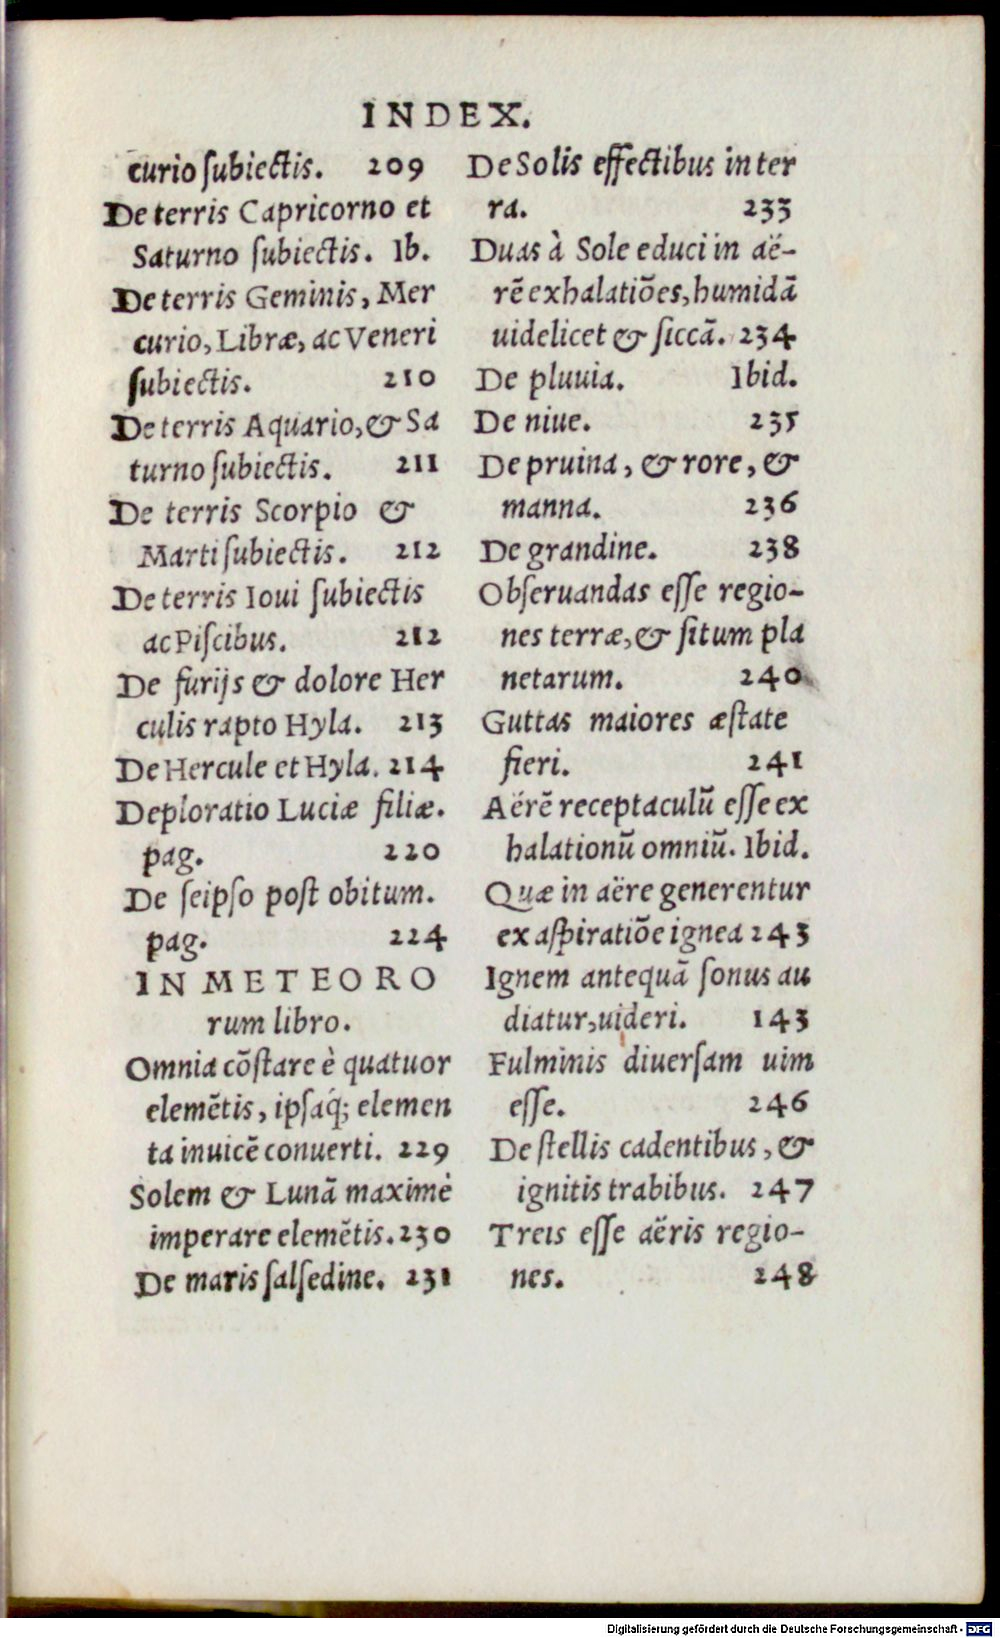 INDEX.
curio ſubiectis. 209
De terris Capricorno et
Saturno ſubiectis. Ib.
De terris Geminis, Mer
curio, Libræ, ac Veneri
ſubiectis. 210
De terris Aquario, & Sa
turno ſubiectis. 211
De terris Scorpio &
Marti ſubiectis. 212
De terris Ioui ſubiectis
ac Piſcibus. 212
De furijs & dolore Her
culis rapto Hyla. 213
De Hercule et Hyla. 214
Deploratio Luciæ filiæ.
pag. 220
De ſeipſo poſt obitum.
pag. 224
IN METEORO
rum libro.
Omnia cõſtare è quatuor
elemẽtis, ipſaq́; elemen
ta inuicẽ conuerti. 229
Solem & Lunã maximè
imperare elemẽtis. 230
De maris ſalſedine. 231
De Solis effectibus in ter
ra. 233
Duas à Sole educi in aë-
rẽ exhalatiões, humidã
uidelicet & ſiccã. 234
De pluuia. Ibid.
De niue. 235
De pruina, & rore, &
manna. 236
De grandine. 238
Obſeruandas eſſe regio-
nes terræ, & ſitum pla
netarum. 240
Guttas maiores æſtate
fieri. 241
Aërẽ receptaculũ eſſe ex
halationũ omniũ. Ibid.
Quæ in aëre generentur
ex aſpiratiõe ignea 243
Ignem antequã ſonus au
diatur, uideri. 143
Fulminis diuerſam uim
eſſe. 246
De ſtellis cadentibus, &
ignitis trabibus. 247
Treis eſſe aëris regio-
nes. 248
Digitalisierung gefördert durch die Deutsche Forschungsgemeinschaft - DFG